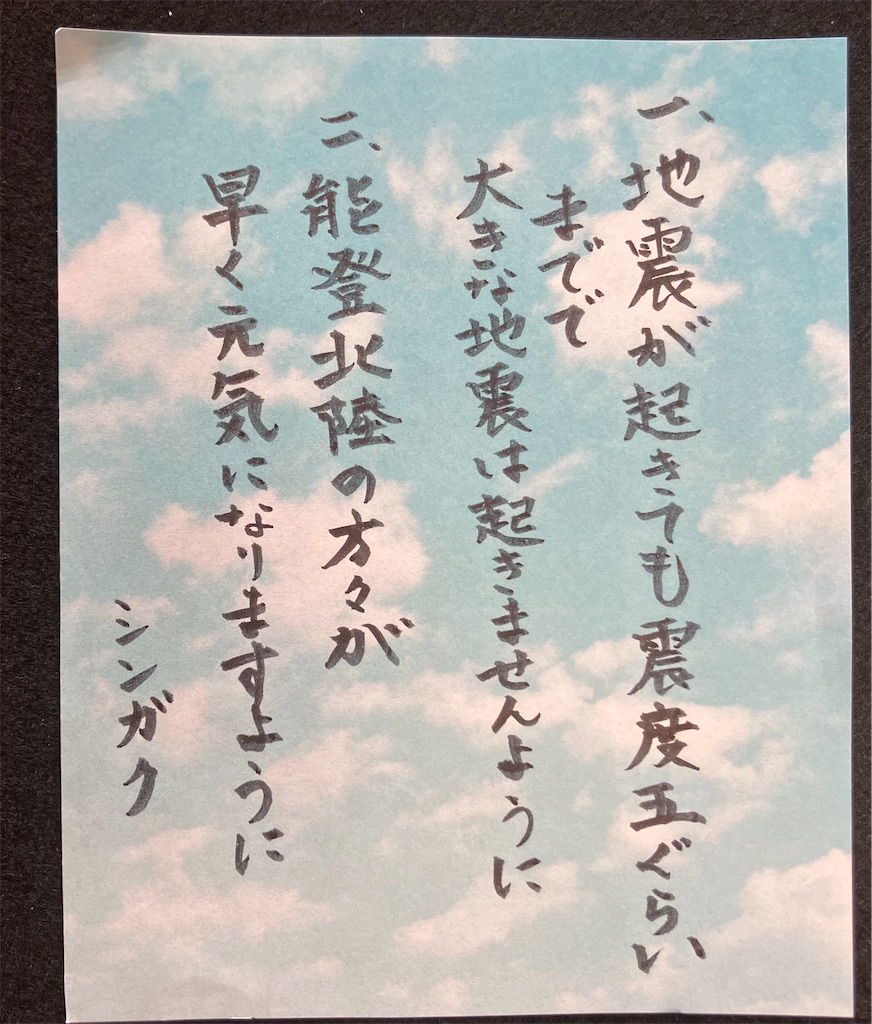 一、地震が起きても震度五ぐらい
までで
大きな地震は起きませんように
二、能登北陸の方々が
早く元気になりますように
シンガク